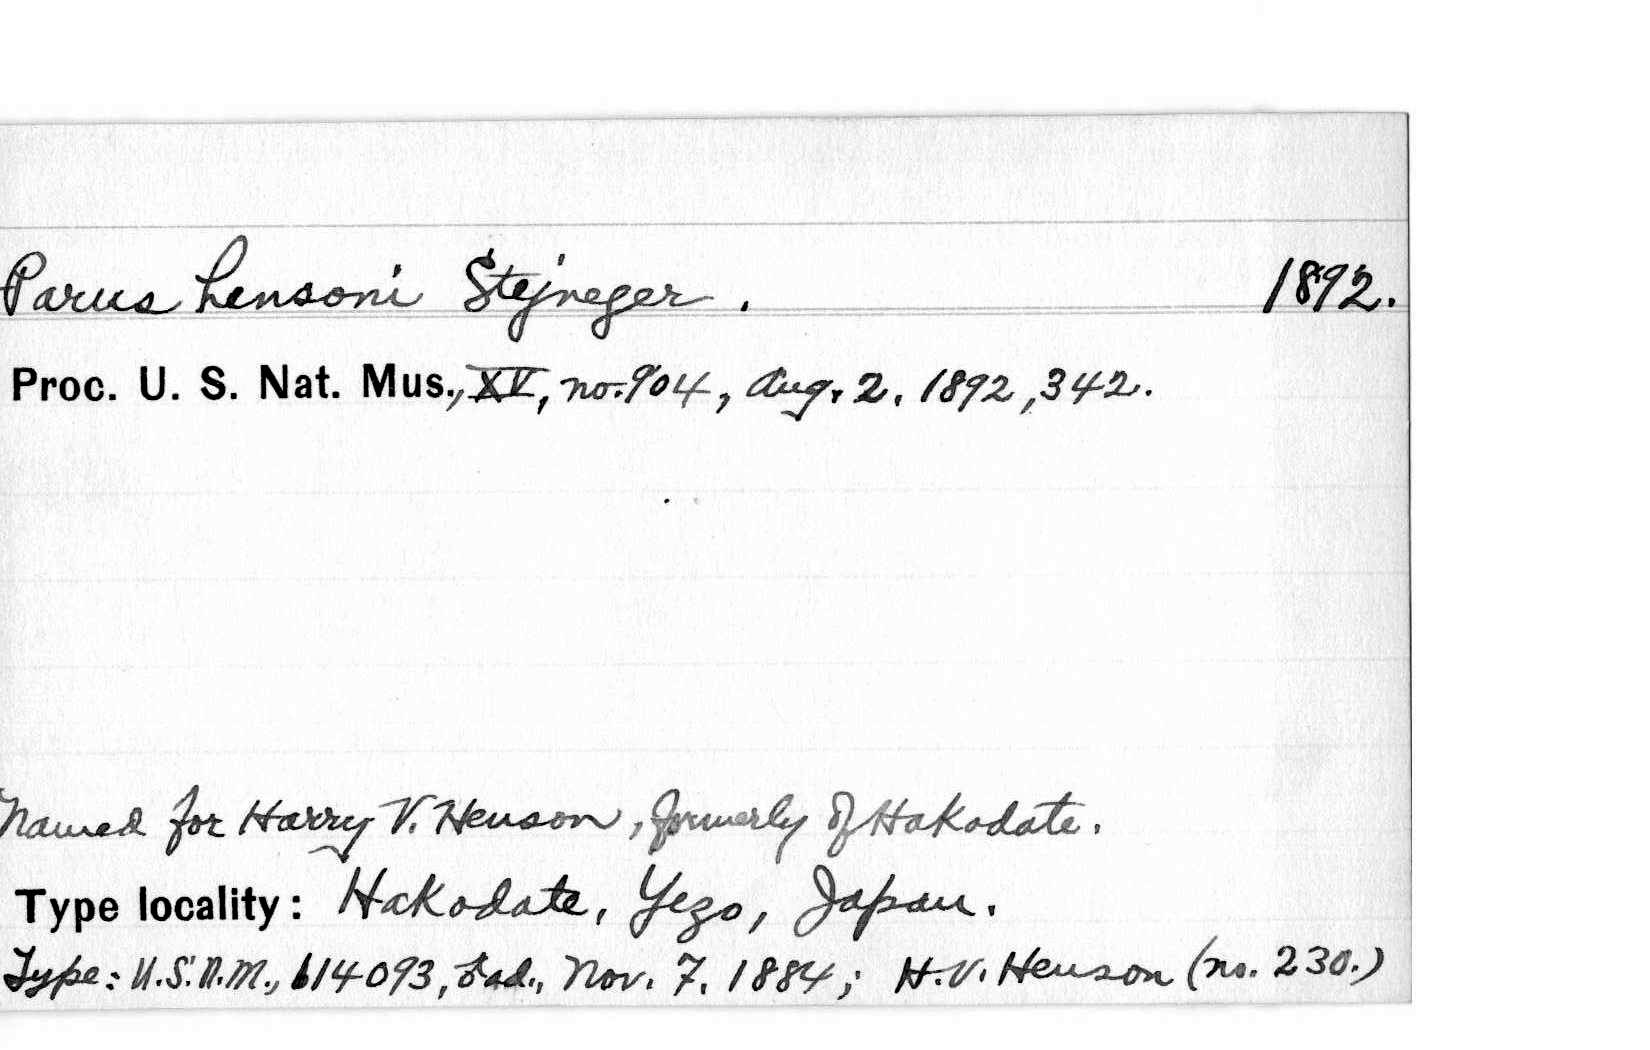 Parus hensoni Stejneger. 1892.
Proc. U. S. Nat. Mus., XV, no. 904, Aug. 2, 1892, 342.
Named for Harry V. Henson, formerly of Hakodate.
Type locality: Hakodate, Yezo, Japan.
Type: U.S.N.M., 114093, ♂ ad., Nov. 7, 1884; H. V. Henson (no. 230.)